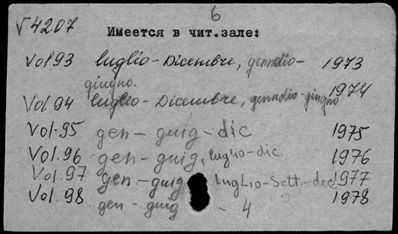 √4207
6
Имеется в чит.зале:
Vol 93 luglio - Dicembre, gennaio - 1973
giugno.
Vol 94 luglio - Dicembre, gennaio - giugno 1974
Vol. 95 gen - guig - dic 1975
Vol. 96 gen - guig, luglio - dic. 1976
Vol. 97 gen - guig luglio - Sett - dec 1977
Vol. 98 gen - guig - 4 1978